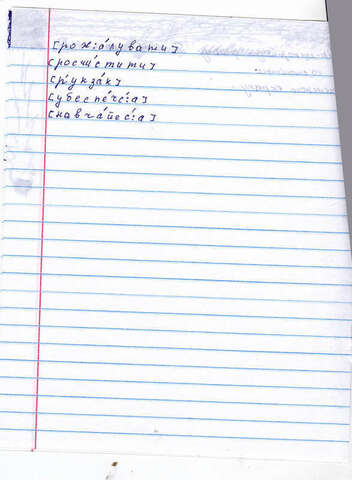 [рож:а́лувати]
[росчи́стити]
[р'укза́к]
[убеспе́че́:а]
[навча́йес́:а]